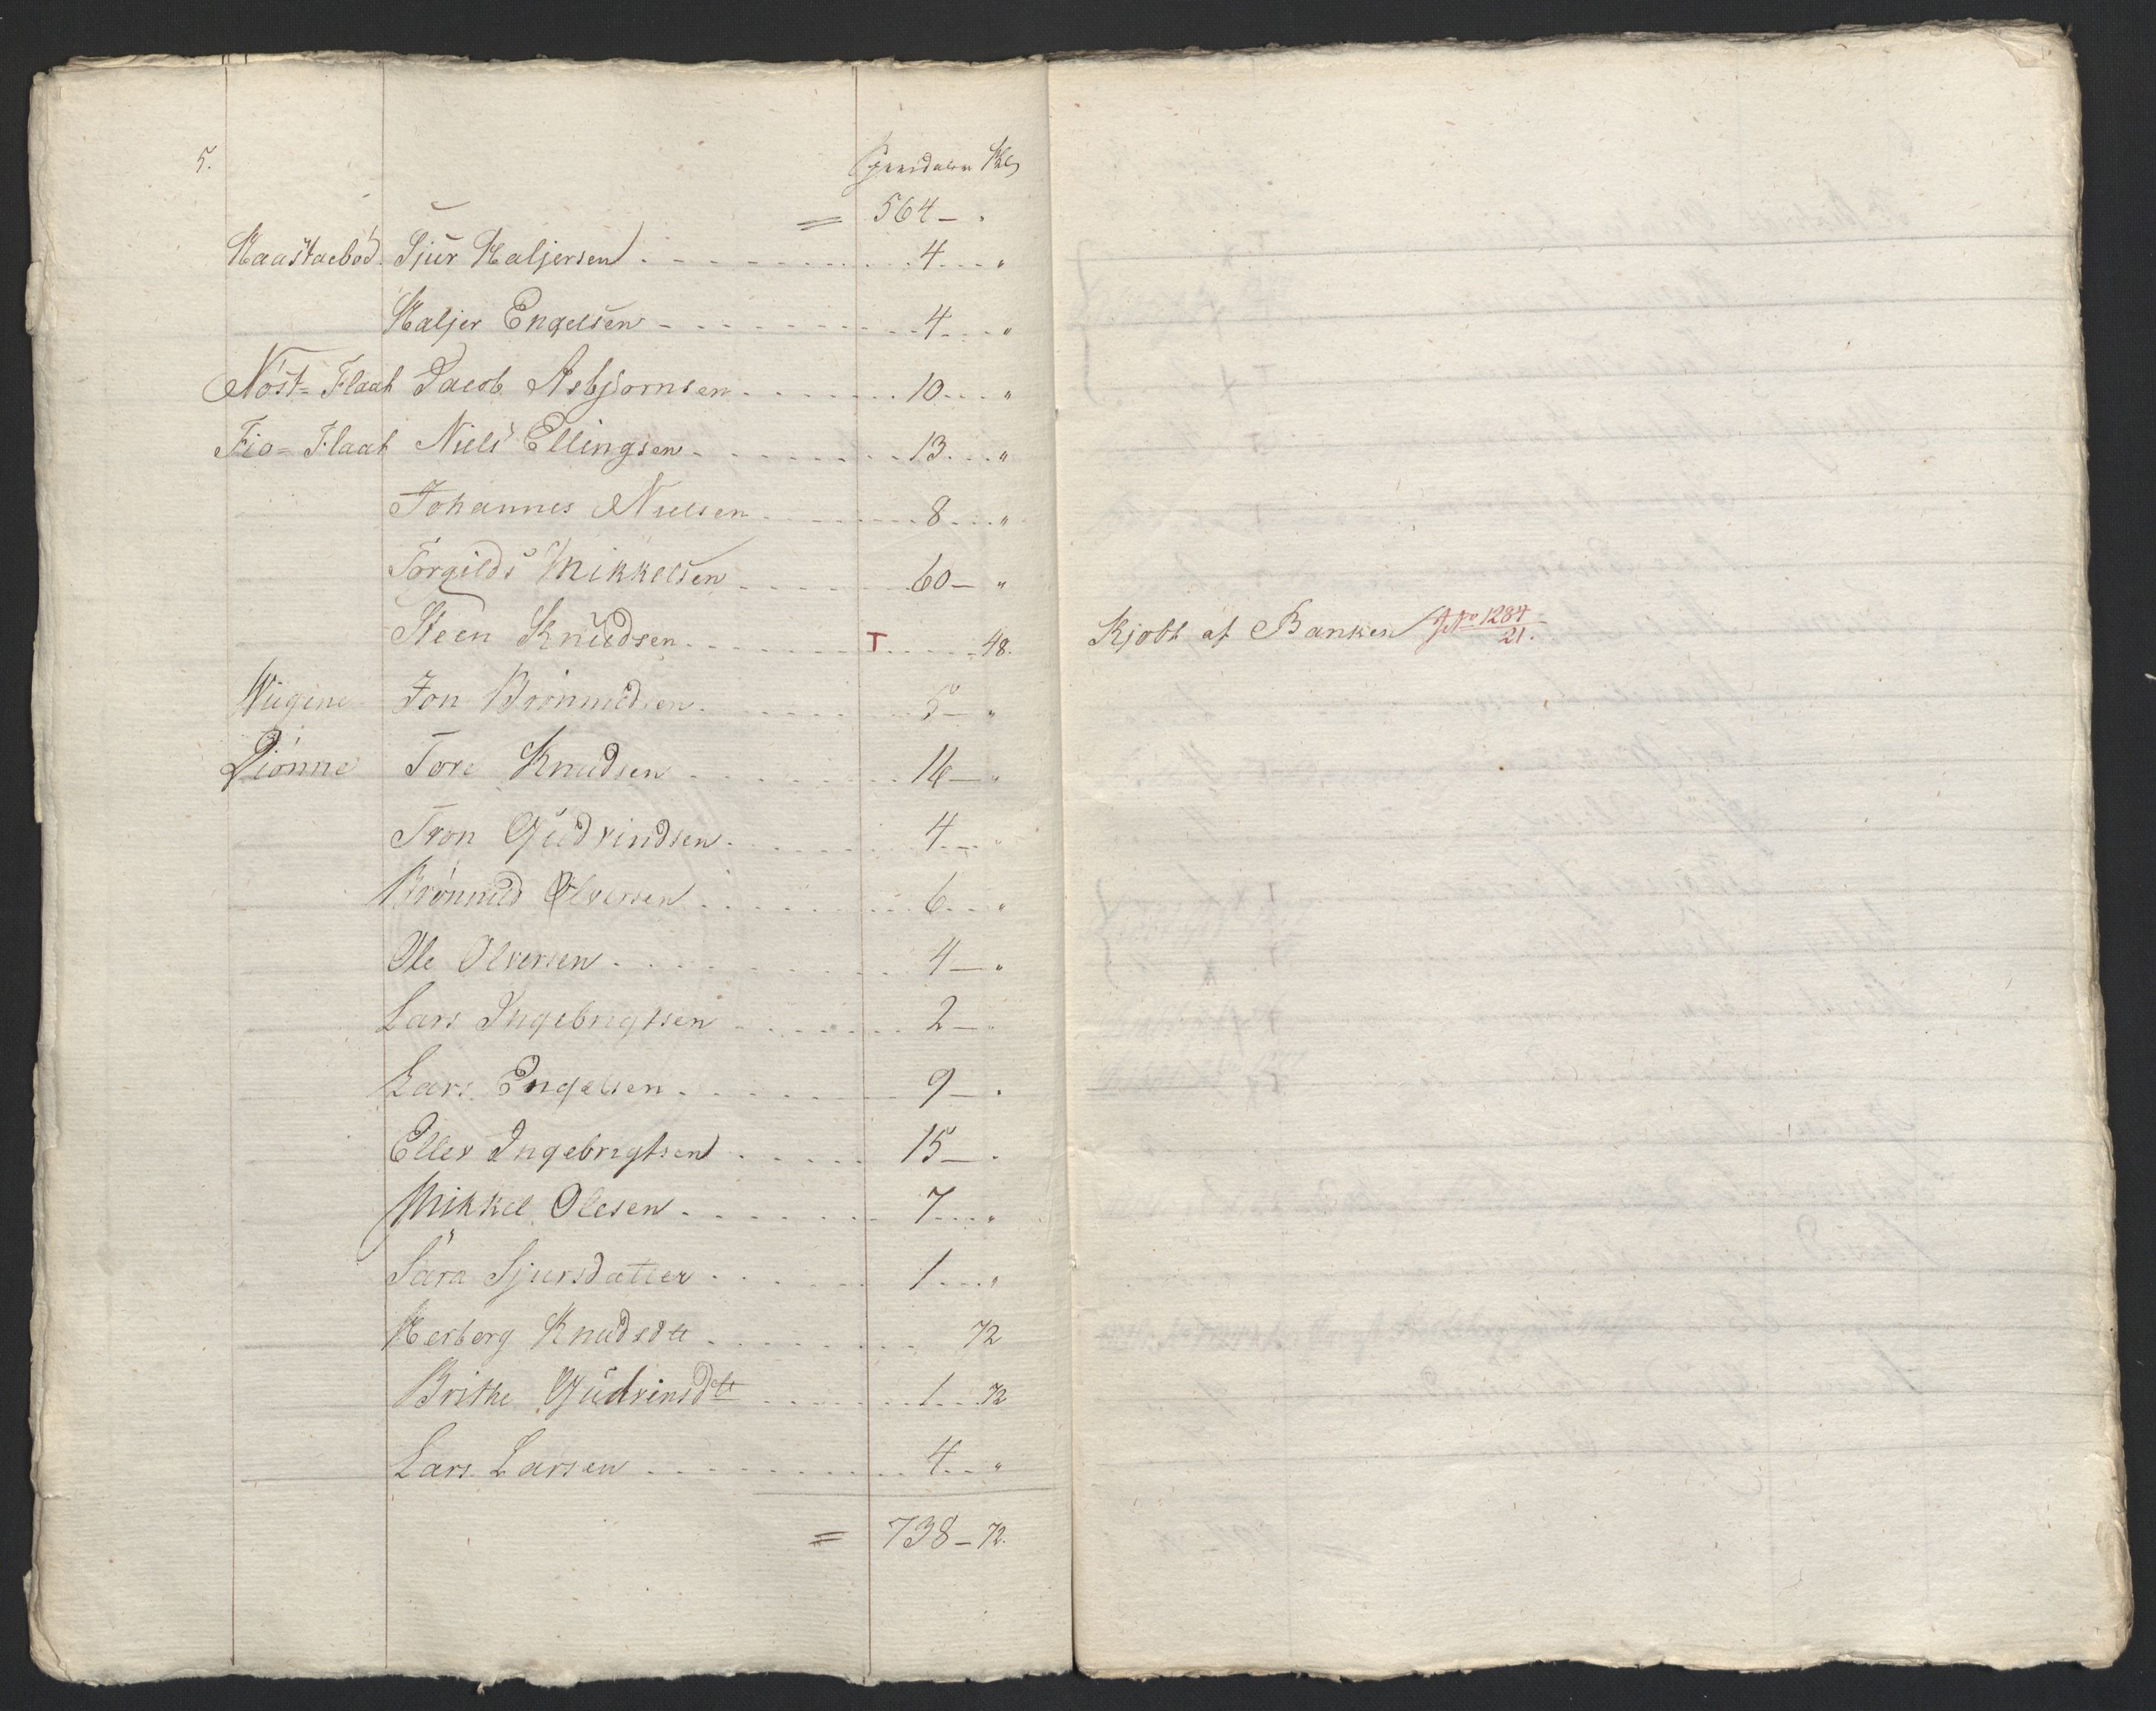 5.
Speciedaler Skl
= 564 — "
Haastaebød. Sjur Haljersen . . . 4 . . "
Haljer Engelsen . . . 4 . . "
Nøst=Flaat Jacob Asbjørnsen . . . 10 . . "
Fio=Flaat Niels Ellingsen . . . 13 . . "
Johannes Nielsen . . . 8 . . "
Torgilds Mikkelsen . . . 60 — "
Steen Knudsen . . . T . . . 48.
Wiigine Jon Brönmidsen . . . 5 — "
Diønne Tore Knudsen . . . 14 — "
Tron Gudvindsen . . . 4 — "
Brönmid Olversen . . . 6 . . "
Ole Olversen . . . 4 — "
Lars Ingebrigtsen . . . 2 — "
Lars Engelsen . . . 9 — "
Eller Ingebrigtsen . . . 15 — "
Mikkel Olesen . . . 7 . . "
Sara Sjursdatter . . . 1 . . "
Herborg Knudsdtt . . . 72
Brithe Gudvinsdtt . . . 1 . . 72
Lars Larsen . . . 4 . . "
= 738 — 72.
Kjøbt af Banken J No 1284/21.